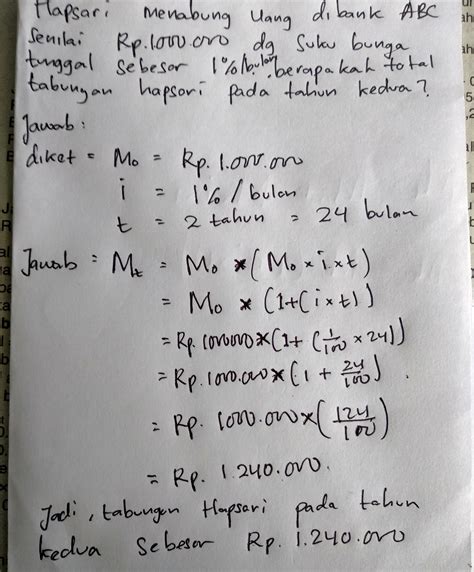 Hapsari Menabung Uang di bank ABC
senilai Rp.1000.000 dg suku bunga
tunggal sebesar 1%/bulan, berapakah total
tabungan hapsari pada tahun kedua?
Jawab :
diket = Mo = Rp. 1.000.000
i = 1% / bulan
t = 2 tahun = 24 bulan
Jawab = Mt = Mo * (Mo × i × t)
= Mo * (1+(i×t))
= Rp. 1000000 * (1+ (1/100 × 24))
= Rp. 1000.000 * (1 + 24/100).
= Rp. 1000.000 × (124/100)
= Rp. 1.240.000.
Jadi, tabungan Hapsari pada tahun
kedua sebesar Rp. 1.240.000